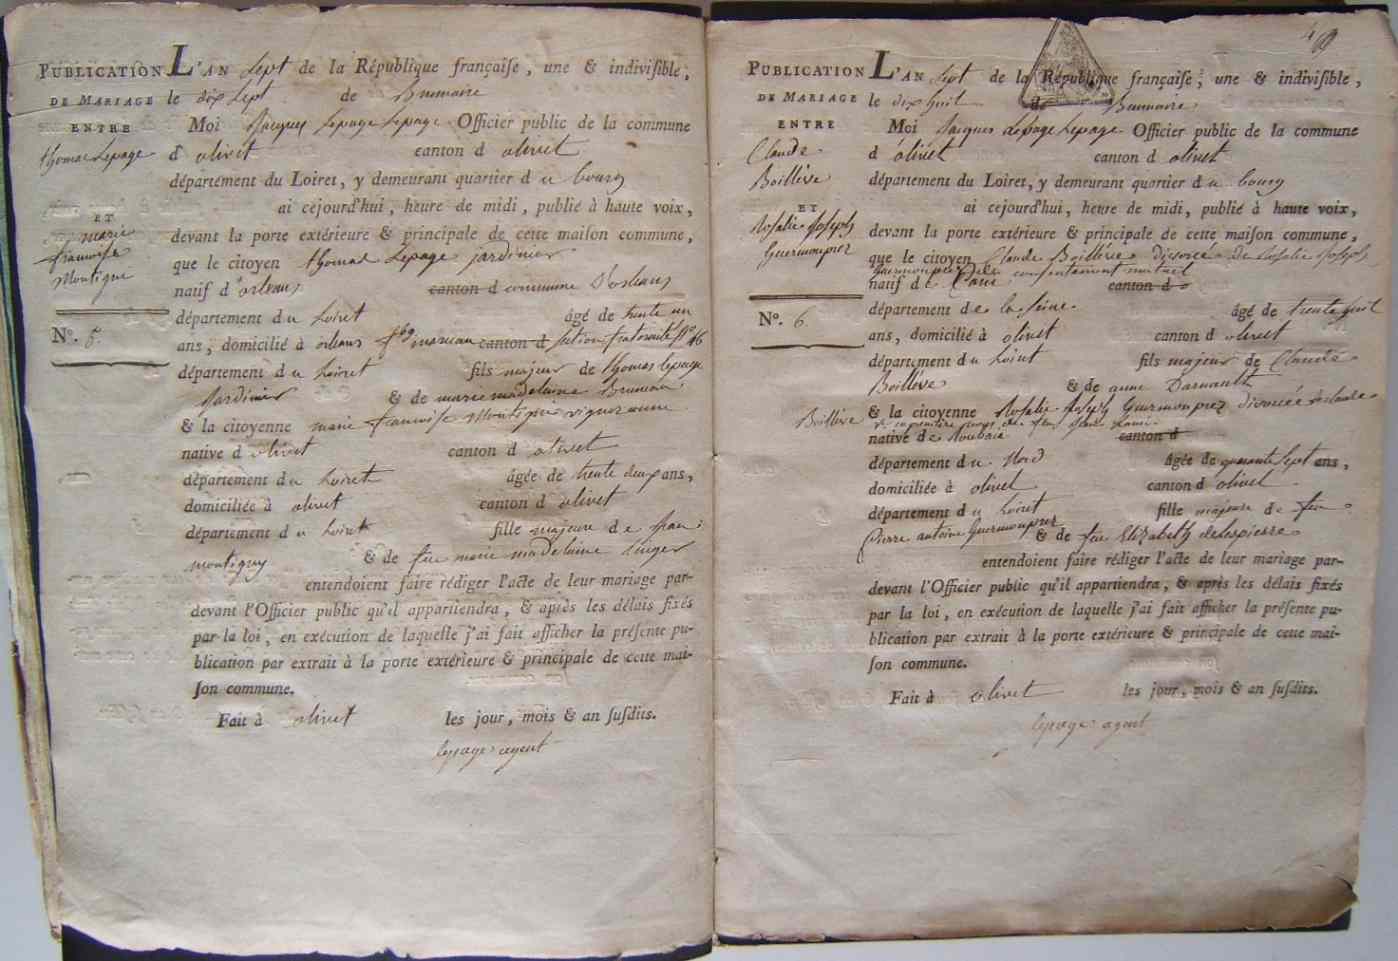 PUBLICATION
DE MARIAGE
ENTRE
thomas Lepage
ET
marie
francoise
Montigni
N°. 5.
L'AN sept de la République françaiſe, une & indiviſible,
le dix sept de Brumaire
Moi Jacques Lepage Lepage Officier public de la commune
d' olivet canton d olivet
département du Loiret, y demeurant quartier d u bourg
ai cejourd'hui, heure de midi, publié à haute voix,
devant la porte extérieure & principale de cette maiſon commune,
que le citoyen thomas Lepage jardinier
natif d'orleans canton d commune d'orleans
département du Loiret âgé de trente un
ans, domicilié à orleans fbg marceau canton d section fraternité n° 46
département du Loiret fils majeur de thomas lepage
Jardinier & de marie madelaine Bruneau
& la citoyenne marie francoise Montigni vigneronne
native d olivet canton d olivet
département du Loiret âgée de trente deux ans,
domiciliée à olivet canton d olivet
département du Loiret fille majeure de
montigny & de feue marie madelaine
entendoient faire rédiger l'acte de leur mariage par-
devant l'Officier public qu'il appartiendra, & après les délais fixés
par la loi, en exécution de laquelle j'ai fait afficher la préſente pu-
blication par extrait à la porte extérieure & principale de cette mai-
ſon commune.
Fait à olivet les jour, mois & an ſuſdits.
lepage agent
PUBLICATION
DE MARIAGE
ENTRE
Claude
Boillève
ET
Rosalie Joseph
Guermonprez
N°. 6.
Boillève
L'AN sept de la République françaiſe, une & indiviſible,
le dix huit de Brumaire
Moi Jacques Lepage Lepage Officier public de la commune
d' olivet canton d olivet
département du Loiret, y demeurant quartier d u bourg
ai cejourd'hui, heure de midi, publié à haute voix,
devant la porte extérieure & principale de cette maiſon commune,
que le citoyen Claude Boillève divorcé de Rosalie Joseph
Guermonprez de consentement mutuel
natif de Paris canton d
département de la seine âgé de trente huit
ans, domicilié à olivet canton d olivet
département du Loiret fils majeur de Claude
Boillève & de anne Darnault
& la citoyenne Rosalie Joseph Guermonprez divorcée
native de Roubaix canton d
département du Nord âgée de quarante sept ans,
domiciliée à olivet canton d olivet
département du Loiret fille majeure de feu
Pierre antoine Guermonprez & de feue Elizabeth delespierre
entendoient faire rédiger l'acte de leur mariage par-
devant l'Officier public qu'il appartiendra, & après les délais fixés
par la loi, en exécution de laquelle j'ai fait afficher la préſente pu-
blication par extrait à la porte extérieure & principale de cette mai-
ſon commune.
Fait à olivet les jour, mois & an ſuſdits.
lepage agent